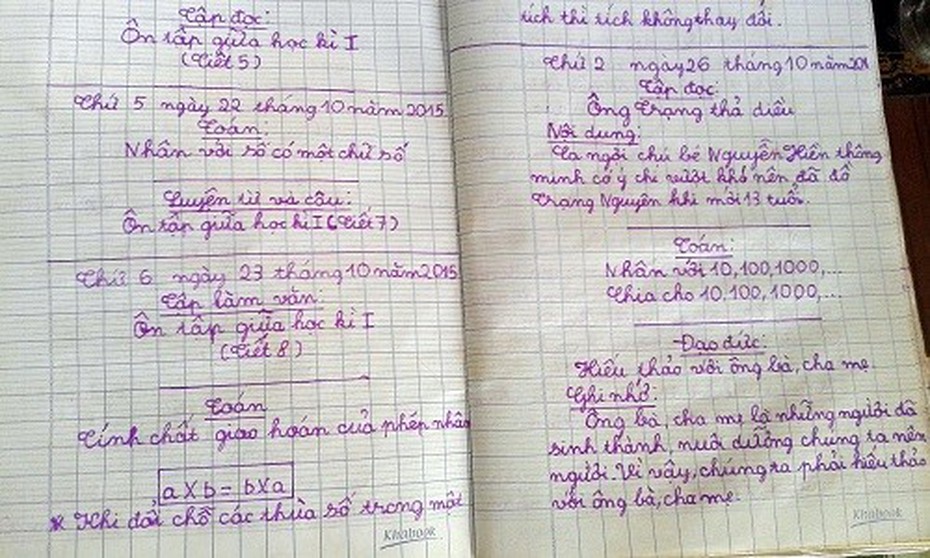 Tập đọc:
Ôn tập giữa học kì I
(Tiết 5)
Thứ 5 ngày 22 tháng 10 năm 2015
Toán:
Nhân với số có một chữ số
Luyện từ và câu:
Ôn tập giữa học kì I (Tiết 7)
Thứ 6 ngày 23 tháng 10 năm 2015
Tập làm văn:
Ôn tập giữa học kì I
(Tiết 8)
Toán
Tính chất giao hoán của phép nhân
a x b = b x a
* Khi đổi chỗ các thừa số trong một
Khabook
tích thì tích không thay đổi.
Thứ 2 ngày 26 tháng 10 năm 201
Tập đọc:
Ông Trạng thả diều
Nội dung:
Ca ngợi chú bé Nguyễn Hiền thông
minh có ý chí vượt khó nên đã đỗ
Trạng Nguyên khi mới 13 tuổi.
Toán:
Nhân với 10, 100, 1000,...
Chia cho 10, 100, 1000,...
Đạo đức:
Hiếu thảo với ông bà, cha mẹ.
Ghi nhớ:
Ông bà, cha mẹ là những người đã
sinh thành, nuôi dưỡng chúng ta nên
người. Vì vậy, chúng ta phải hiếu thảo
với ông bà, cha mẹ.
Khabook